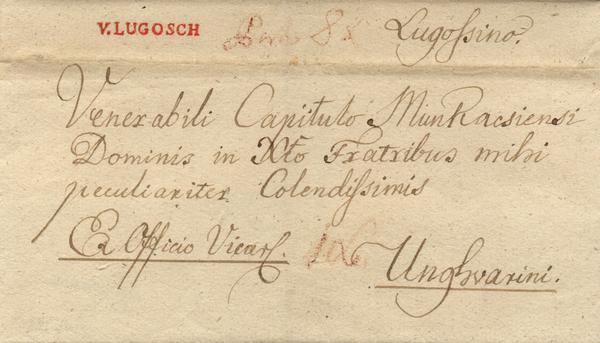 V. LUGOSCH Lugossino.
Venerabili Capitulo Munkacsiensi
Dominis in Xto Fratribus mihi
peculiariter Colendissimis
Ex Officio Vicar.
Unghvarini.